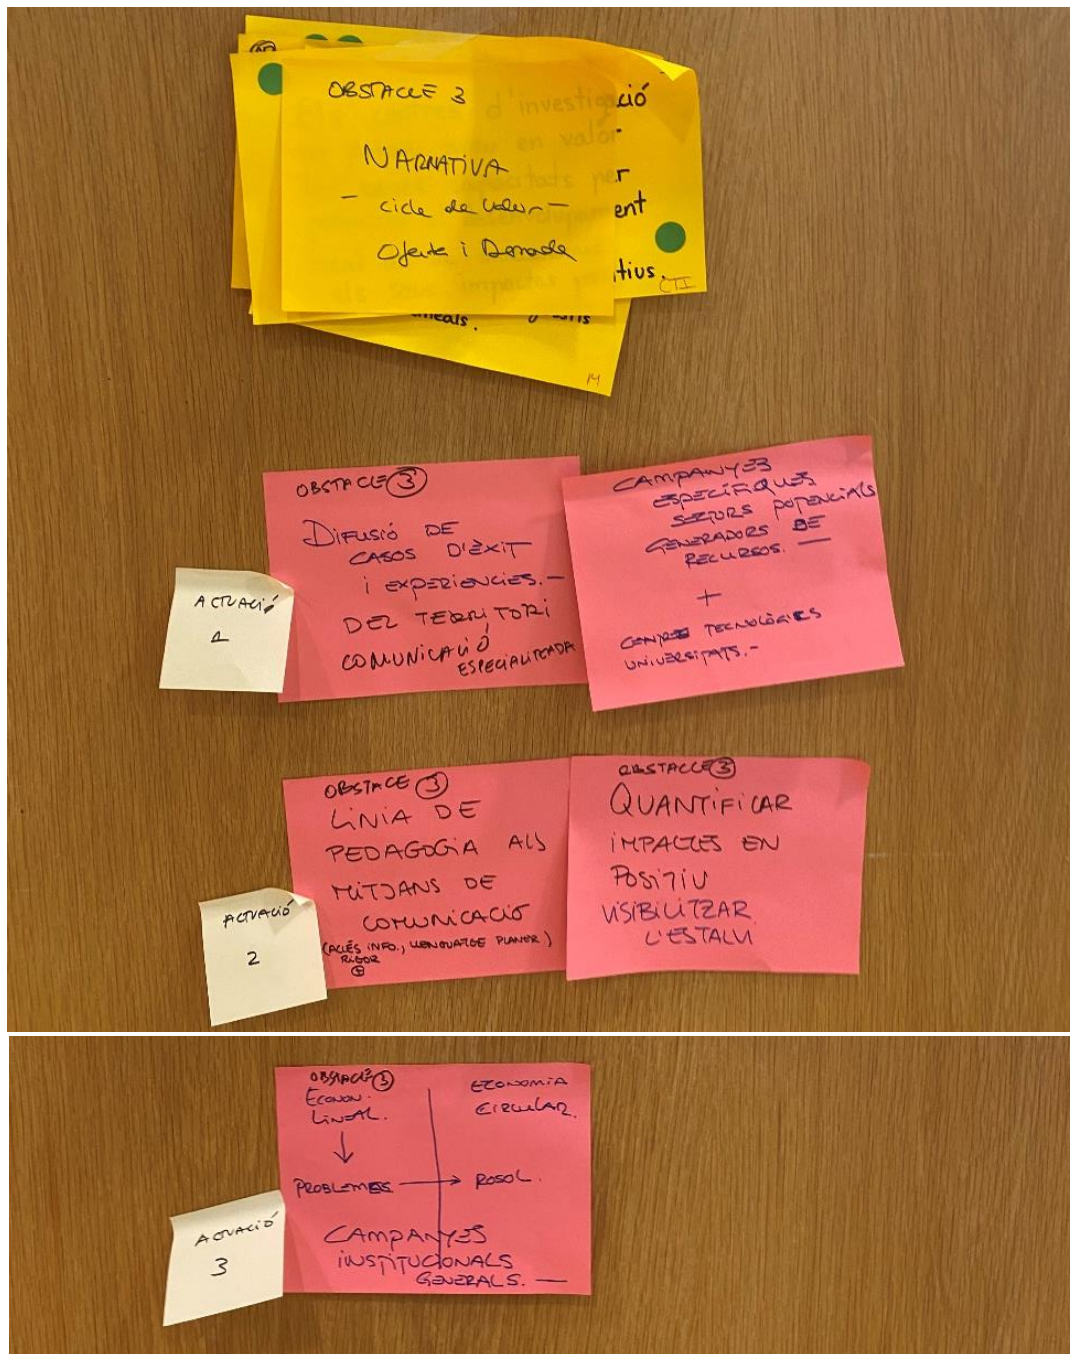 OBSTACLE 3
NARRATIVA
- cicle de valor -
Oferta i Demada
ció
r
ent
tius.
CTI
neals.
14
OBSTACLE 3
DIFUSIÓ DE
CASOS D'ÈXIT
i EXPERIENCIES.-
DEL TERRITORI
COMUNICACIÓ
ESPECIALITZADA
CAMPANYES
ESPECÍFIQUES
SECTORS POTENCIALS
GENERADORS DE
RECURSOS. —
+
CENTRES TECNOLÒGICS
UNIVERSITATS.-
ACTUACIÓ
1
OBSTACE 3
LÍNIA DE
PEDAGOGIA ALS
MITJANS DE
COMUNICACIÓ
(ACCÉS INFO., LLENGUATGE PLANER)
RIGOR
+
OBSTACLE 3
QUANTIFICAR
IMPACTES EN
POSITIU
VISIBILITZAR
L'ESTALVI
ACTUACIÓ
2
OBSTACLE 3
ECONOM.
LINEAL.
ECONOMIA
CIRCULAR.
PROBLEMES → RESOL.
CAMPANYES
INSTITUCIONALS
GENERALS. —
ACTUACIÓ
3